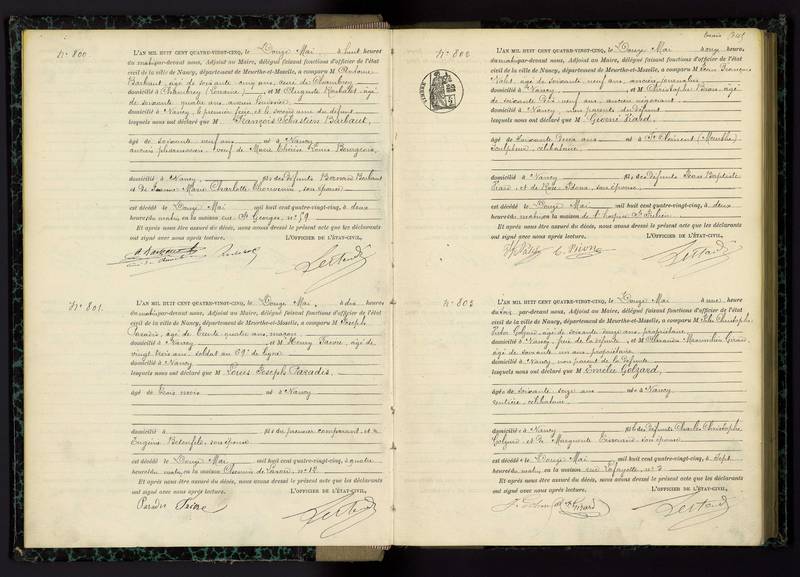 N° 800
L'AN MIL HUIT CENT QUATRE-VINGT-CINQ, le Douze Mai, à huit heures
du matin par-devant Nous, Adjoint au Maire, délégué faisant fonctions d'officier de l'état
civil de la ville de Nancy, département de Meurthe-et-Moselle, a comparu M Antoine
Barbaut, âgé de soixante cinq ans, curé de Chambrey
domicilié à Chambrey (Lorraine), et M Auguste âgé
de soixante quatre ans, ancien
domicilié à Nancy, le premier frère et le second ami du défunt
lesquels nous ont déclaré que M. François Sébastien Barbaut,
âgé de soixante neuf ans né à Nancy
ancien pharmacien veuf de Marie Thérèse Louis Bourgeois,
domicilié à Nancy, fils des défunts Bernard Barbaut
et de Jeanne Marie Charlotte son épouse
est décédé le Douze Mai mil huit cent quatre-vingt-cinq, à deux
heures du matin en la maison rue St Georges, n° 59
Et après nous être assuré du décès, nous avons dressé le présent acte que les déclarants
ont signé avec nous après lecture. L'OFFICIER DE L'ÉTAT-CIVIL,
N° 801.
L'AN MIL HUIT CENT QUATRE-VINGT-CINQ, le Douze Mai, à dix heures
du matin par-devant Nous, Adjoint au Maire, délégué faisant fonctions d'officier de l'état
civil de la ville de Nancy, département de Meurthe-et-Moselle, a comparu M Joseph
Paradis, âgé de trente quatre ans, maçon
domicilié à Nancy et M Henry âgé de
vingt trois ans, soldat au 69e de ligne
domicilié à Nancy
lesquels nous ont déclaré que M Louis Joseph Paradis,
âgé de trois mois né à Nancy
domicilié à fils du premier comparant et de
Eugénie son épouse
est décédé le Douze Mai mil huit cent quatre-vingt-cinq, à quatre
heures du matin, en la maison Chemin de n° 12
Et après nous être assuré du décès, nous avons dressé le présent acte que les déclarants
ont signé avec nous après lecture. L'OFFICIER DE L'ÉTAT-CIVIL,
Paradis
N° 802
L'AN MIL HUIT CENT QUATRE-VINGT-CINQ, le Douze Mai à onze heures,
du matin par-devant Nous, Adjoint au Maire, délégué faisant fonctions d'officier de l'état
civil de la ville de Nancy, département de Meurthe-et-Moselle, a comparu M François
âgé de soixante neuf ans, ancien
domicilié à Nancy, et M Christophe âgé
de soixante dix neuf ans, ancien négociant
domicilié à Nancy non parents du défunt
lesquels nous ont déclaré que M
âgé de soixante deux ans né à St Clément (Meurthe)
célibataire,
domicilié à Nancy fils des défunts Jean Baptiste
et de Rose son épouse
est décédé le Douze Mai mil huit cent quatre-vingt-cinq, à deux
heures du matin en la maison de l'hospice St Julien
Et après nous être assuré du décès, nous avons dressé le présent acte que les déclarants
ont signé avec nous après lecture. L'OFFICIER DE L'ÉTAT-CIVIL,
N° 803
L'AN MIL HUIT CENT QUATRE-VINGT-CINQ, le Douze Mai à une heure,
du soir par-devant Nous, Adjoint au Maire, délégué faisant fonctions d'officier de l'état
civil de la ville de Nancy, département de Meurthe-et-Moselle, a comparu M Christophe
Victor âgé de soixante douze ans, propriétaire
domicilié à Nancy, frère de la défunte, et M Maximilien Girard,
âgé de soixante un ans propriétaire
domicilié à Nancy non parent de la défunte
lesquels nous ont déclaré que M Emélie
âgée de soixante seize ans née à Nancy
rentière, célibataire
domiciliée à Nancy fille des défunts Charles Christophe
et de Marguerite son épouse
est décédée le Douze Mai mil huit cent quatre-vingt-cinq, à sept
heures du matin, en la maison rue Lafayette, n° 3
Et après nous être assuré du décès, nous avons dressé le présent acte que les déclarants
ont signé avec nous après lecture. L'OFFICIER DE L'ÉTAT-CIVIL,
Girard